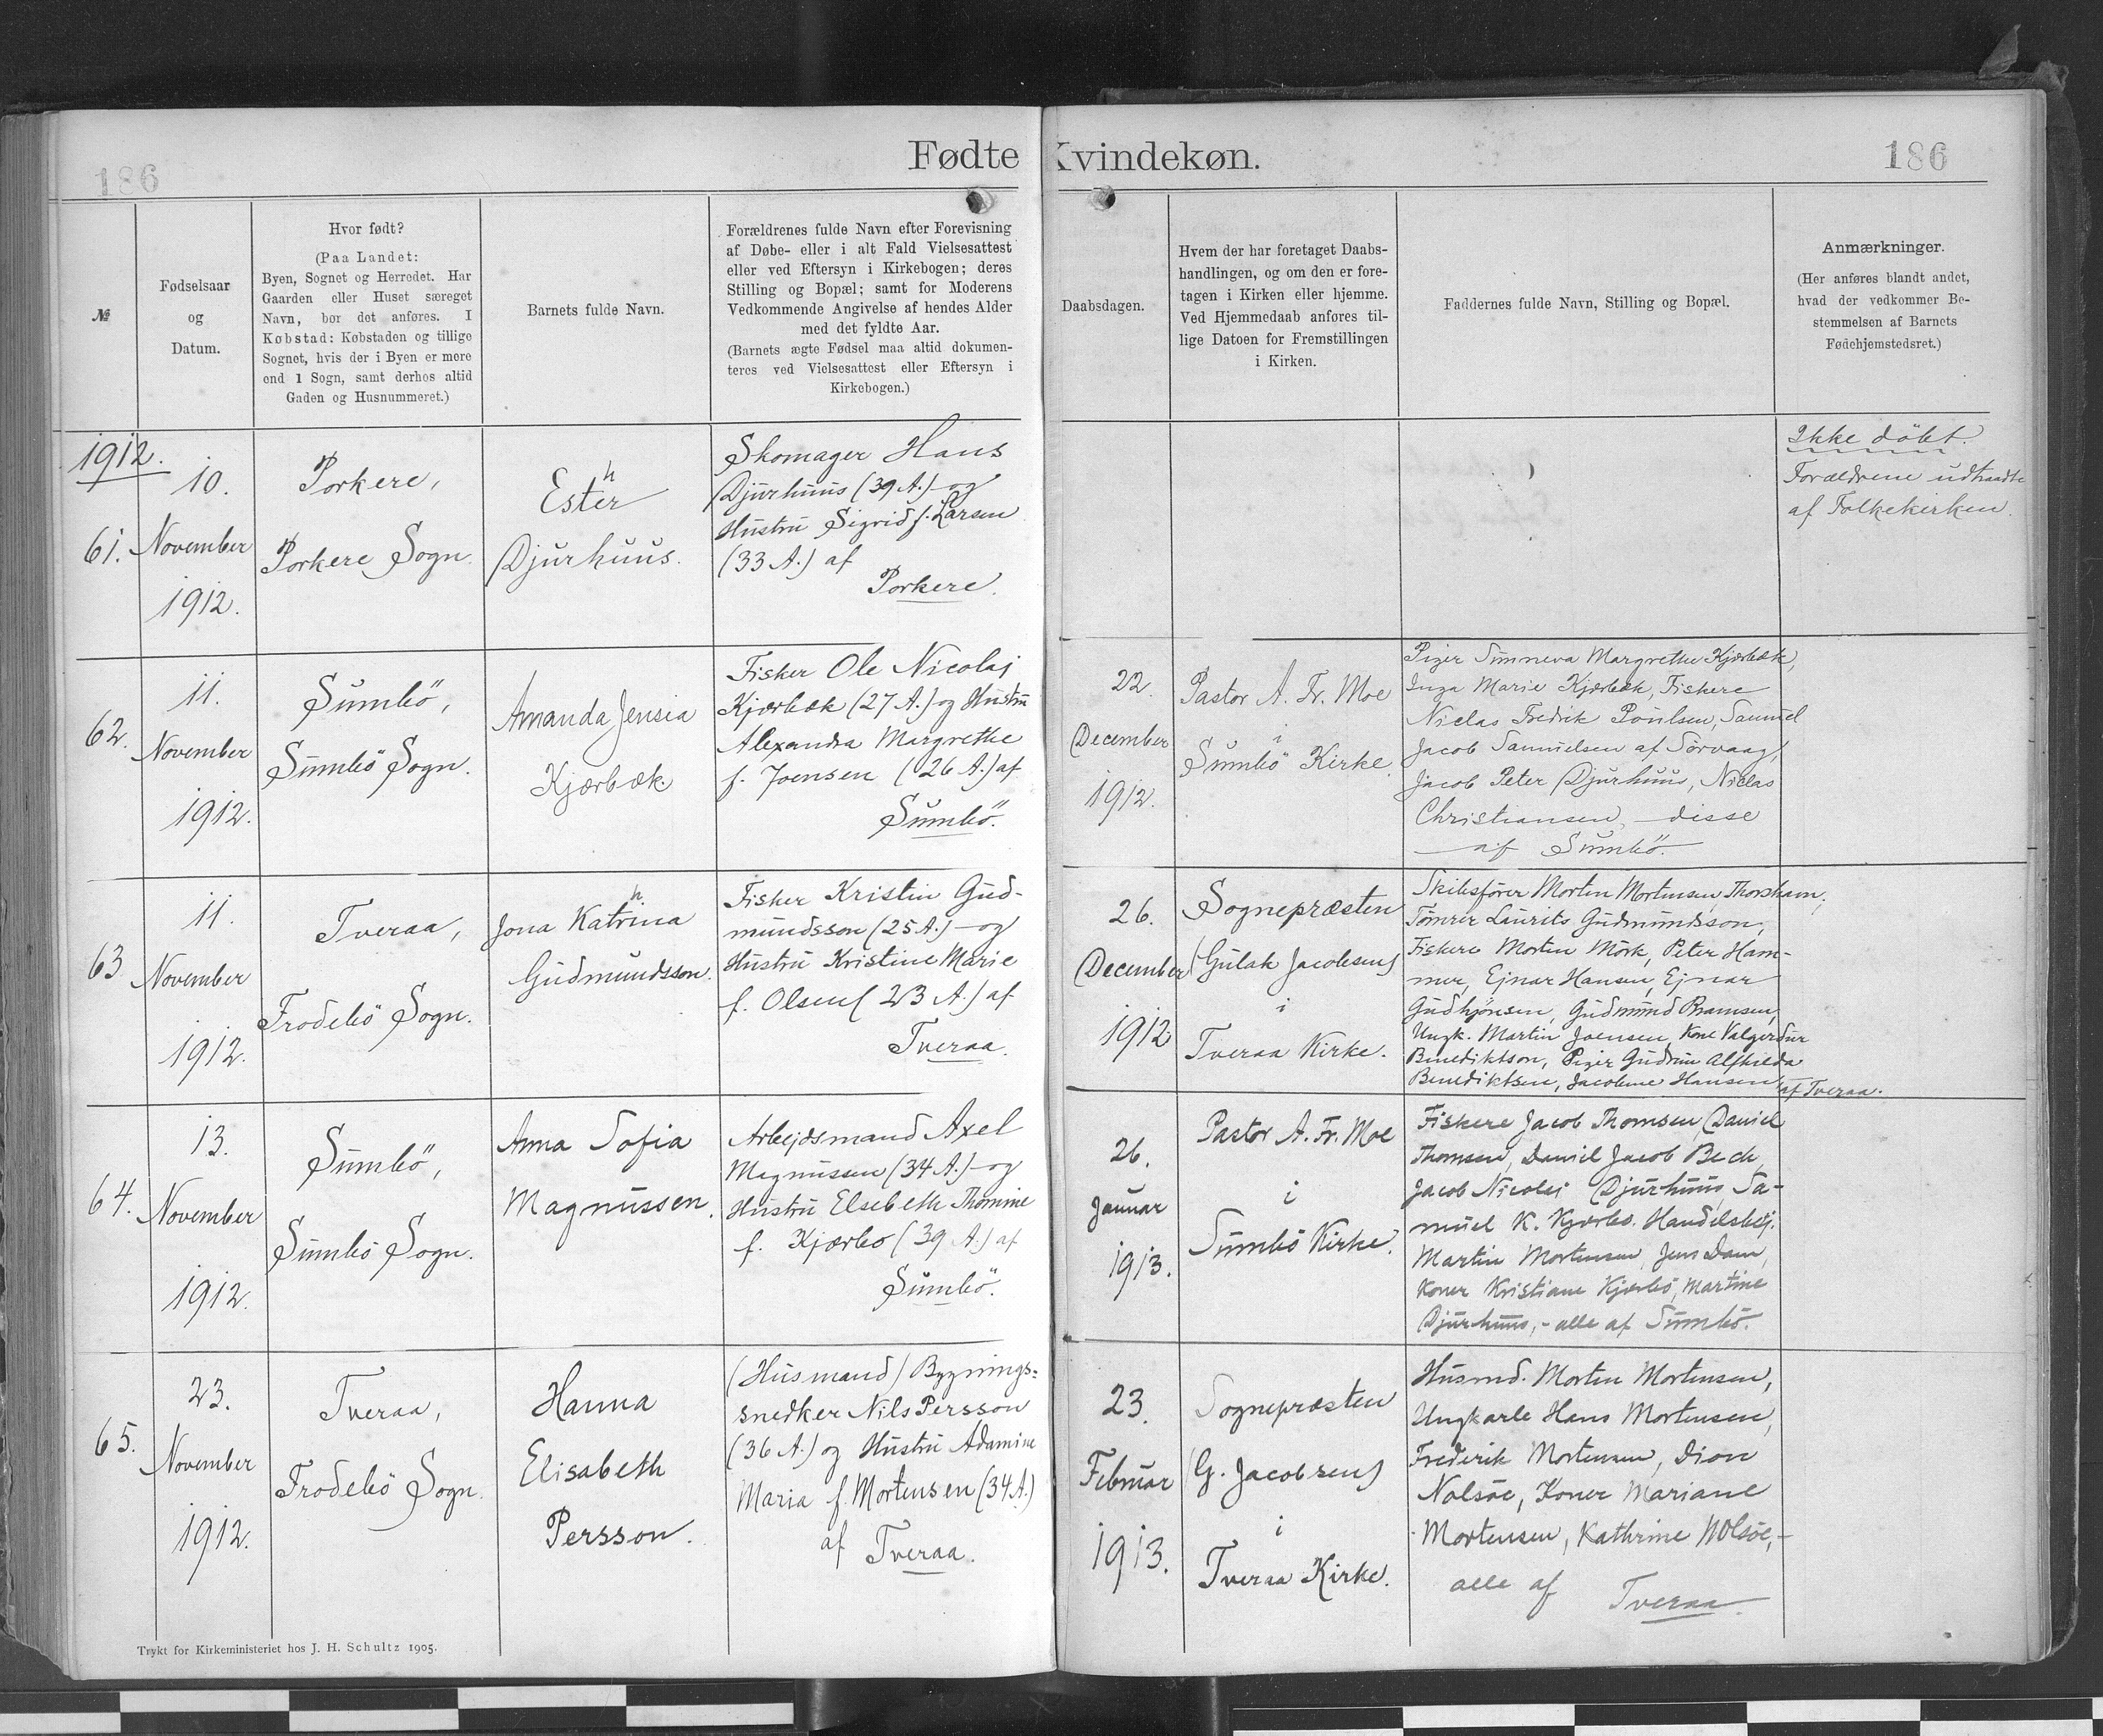 186
Fødte Kvindekøn.
186
№
Fødselsaar
og
Datum.
Hvor født?
(Paa Landet:
Byen, Sognet og Herredet. Har
Gaarden eller Huset særeget
Navn, bør det anføres. I
Købstad: Købstaden og tillige
Sognet, hvis der i Byen er mere
end 1 Sogn, samt derhos altid
Gaden og Husnummeret.)
Barnets fulde Navn.
Forældrenes fulde Navn efter Forevisning
af Døbe- eller i alt Fald Vielsesattest
eller ved Eftersyn i Kirkebogen; deres
Stilling og Bopæl; samt for Moderens
Vedkommende Angivelse af hendes Alder
med det fyldte Aar.
(Barnets ægte Fødsel maa altid dokumen-
teres ved Vielsesattest eller Eftersyn i
Kirkebogen.)
Daabsdagen.
Hvem der har foretaget Daabs-
handlingen, og om den er fore-
tagen i Kirken eller hjemme.
Ved Hjemmedaab anføres til-
lige Datoen for Fremstillingen
i Kirken.
Faddernes fulde Navn, Stilling og Bopæl.
Anmærkninger.
(Her anføres blandt andet,
hvad der vedkommer Be-
stemmelsen af Barnets
Fødehjemstedsret.)
1912.
61.
10.
November
1912.
Porkere,
Porkere Sogn.
h
Ester
Djurhuus.
Skomager Hans
Djurhuus (39 A.) og
Hustru Sigrid f. Larsen
(33 A.) af
Porkere.
Ikke döbt.
Forældrene udtraadte
af Folkekirken.
62.
11.
November
1912.
Sumbö,
Sumbö Sogn.
Amanda Jensia
Kjærbæk
Fisker Ole Nicolaj
Kjærbæk (27 A.) og Hustru
Alexandra Margrethe
f. Joensen (26 A.) af
Sumbö.
22.
December
1912.
Pastor A. Fr. Moe
i
Sumbö Kirke.
Piger Sunneva Margrethe Kjærbæk,
Inga Marie Kjærbæk, Fiskere
Niclas Fredrik Poulsen, Samuel
Jacob Samuelsen af Sörvaag,
Jacob Peter Djurhuus, Niclas
Christiansen, disse
af Sumbö.
63
11.
November
1912.
Tveraa,
Frodebö Sogn.
h
Jona Katrina
Gudmundsson.
Fisker Kristin Gud-
mundsson (25 A.) og
Hustru Kristine Marie
f. Olsen (23 A.) af
Tveraa.
26.
December
1912
Sognepræsten
(Gulak Jacobsen)
i
Tveraa Kirke.
Skibsfører Morten Mortensen Thorshavn,
Tömrer Laurits Gudmundsson,
Fiskere Morten Mörk, Peter Ham-
mer, Ejnar Hansen, Ejnar
Gudhjönsen, Gudmund Bramsen,
Ungk. Martin Joensen, Kone Valgerdur
Benediktson, Piger Gudrun Alfhilda
Benediktsen, Jacobine Hansen af Tveraa.
64.
13.
November
1912.
Sumbö,
Sumbö Sogn.
Anna Sofia
Magnussen.
Arbejdsmand Axel
Magnussen (34 A.) og
Hustru Elsebeth Thomine
f. Kjærbo (39 A.) af
Sumbö.
26.
Januar
1913.
Pastor A. Fr. Moe
i
Sumbö Kirke.
Fiskere Jacob Thomsen, Daniel
Thomsen, Daniel Jacob Beck,
Jacob Nicolai Djurhuus, Sa-
muel K. Kjærbo. Handelsbetj.
Martin Mortensen, Jens Dam,
Koner Kristiane Kjærbö, Martine
Djurhuus, - alle af Sumbö.
65.
23.
November
1912.
Tveraa,
Frodebö Sogn.
Hanna
Elisabeth
Persson.
(Husmand) Bygnings-
snedker Nils Persson
(36 A.) og Hustru Adamine
Maria f. Mortensen (34 A.)
af Tveraa.
23.
Februar
1913.
Sognepræsten
(G. Jacobsen)
i
Tveraa Kirke.
Husmd. Morten Mortensen,
Ungkarle Hans Mortensen,
Frederik Mortensen, Dion
Nolsöe, Koner Mariane
Mortensen, Kathrine Nolsöe, -
alle af Tveraa.
Trykt for Kirkeministeriet hos J. H. Schultz 1905.